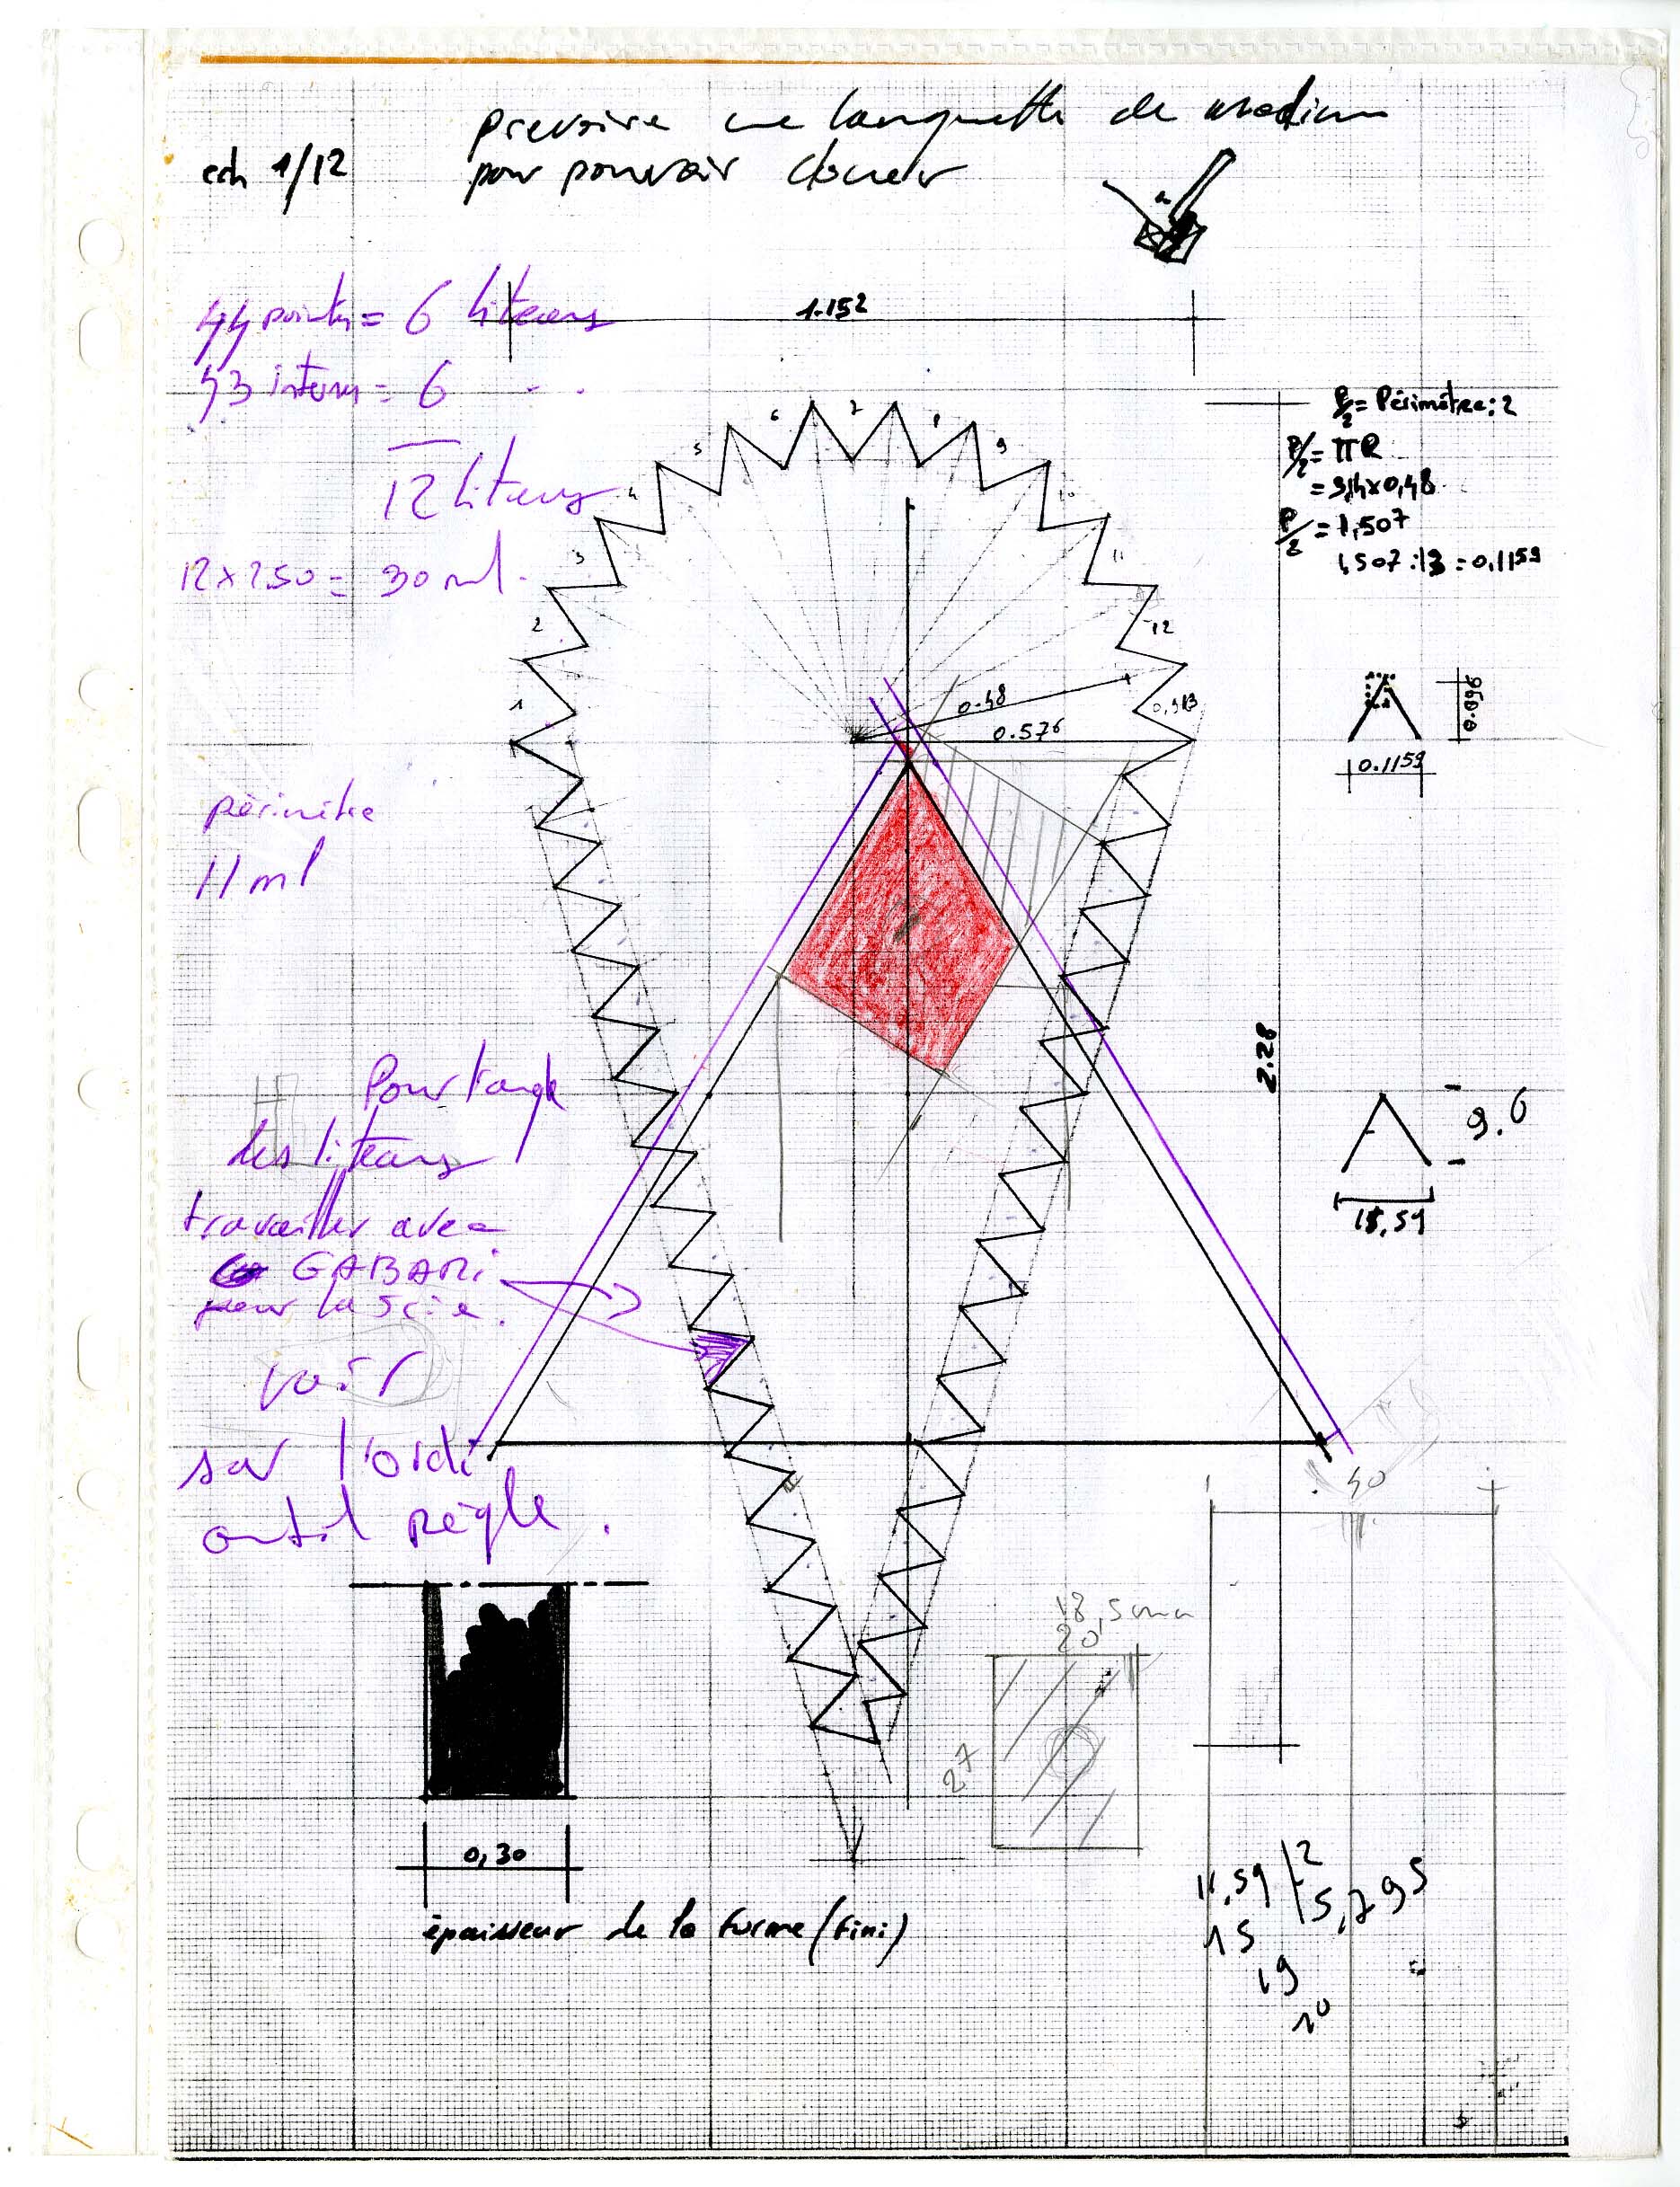 prevoire une languette de medium
ech 1/12
pour pouvoir clouer
44 points = 6 liteaux
1.152
43 interv = 6 - -
P/2 = Périmètre : 2
P/2 = πR
= 3,14 x 0,48
P/2 = 1,507
1,507 : 13 = 0,1159
12 liteaux
12 x 250 = 30 ml.
1
2
3
4
5
6
7
8
9
10
11
12
0.48
0.576
0.096
0.1159
périmètre
11 ml
2.28
Pour l'angle
des liteaux
travailler avec
GABARi
pour la scie.
voir
sur l'ordi
outil règle.
9.6
40
20
27
0,30
épaisseur de la forme (fini)
11,59 | 2
5,795
15
19
10